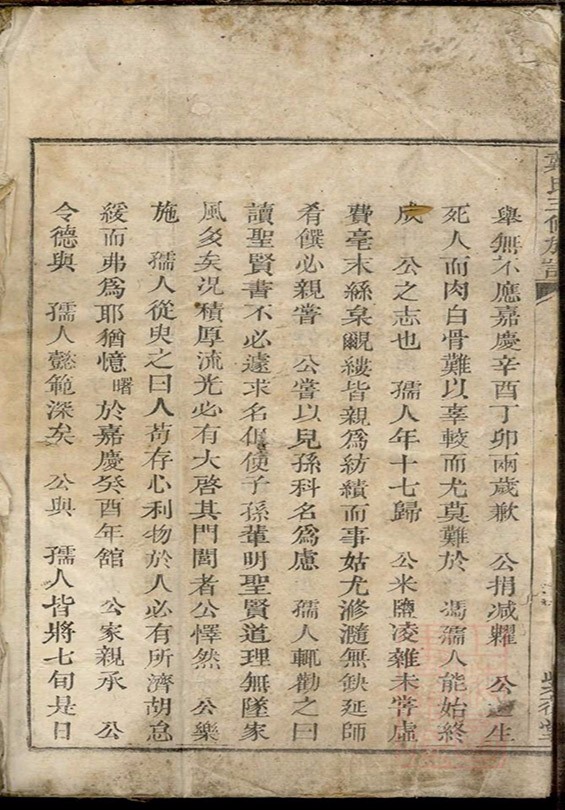 舉無不應嘉慶辛酉丁卯兩歲歉　公捐減糶　公生
死人而肉白骨難以辜較而尤莫難於　馮孺人能始終
成　公之志也　孺人年十七歸　公米鹽凌雜未嘗虛
費毫末絲枲覼縷皆親爲紡績而事姑尤滫瀡無缺延師
肴饌必親嘗　公嘗以兒孫科名爲慮　孺人輒勸之曰
讀聖賢書不必遽求名但使子孫輩明聖賢道理無墜家
風多矣况積厚流光必有大啓其門閭者公懌然　公樂
施　孺人從臾之曰人苟存心利物於人必有所濟胡怠
緩而弗爲耶猶憶曙於嘉慶癸酉年舘　公家親承　公
令德與　孺人懿範深矣　公與　孺人皆將七旬是日